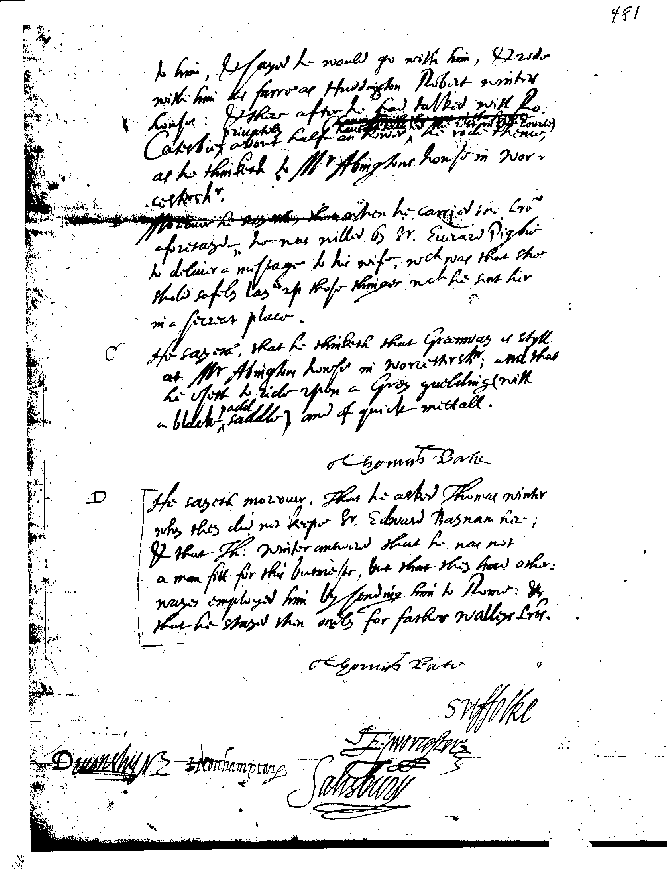 481
to him, & sayed he would go with him, & rode
with him as farre as Huddington Robert winters
howse: & there after he had talked with Ro.
Catesby privately about half an hower, he rode thence,
as he thinketh to Mr Abingtons howse in wor-
cestershr.
when he carried the
aforesayd, he was willed by Sr. Everard Digbie
to deliver a message to his wife, wch was that she
shold safely lay up those things wch he sent her
in a secret place.
C He sayeth, that he thinketh that Greenway is styll
at Mr Abingtons howse in worcestershr; and that
he useth to ride upon a Grey guelding (with
a black padd saddle) and of quick mettall.
Thomas Bate
D He sayeth moreover, That he asked Thomas winter
why they did not keepe Sr. Edward Baynam here;
& that Tho. winter answered that he was not
a man fitt for this businesse, but that they had other-
wayes employed him by sending him to Rome: &
that he stayed then only for father walleys Lrs.
Thomas Bate
Suffolke
E worcester
Devonshyre Northampton
Salisbury